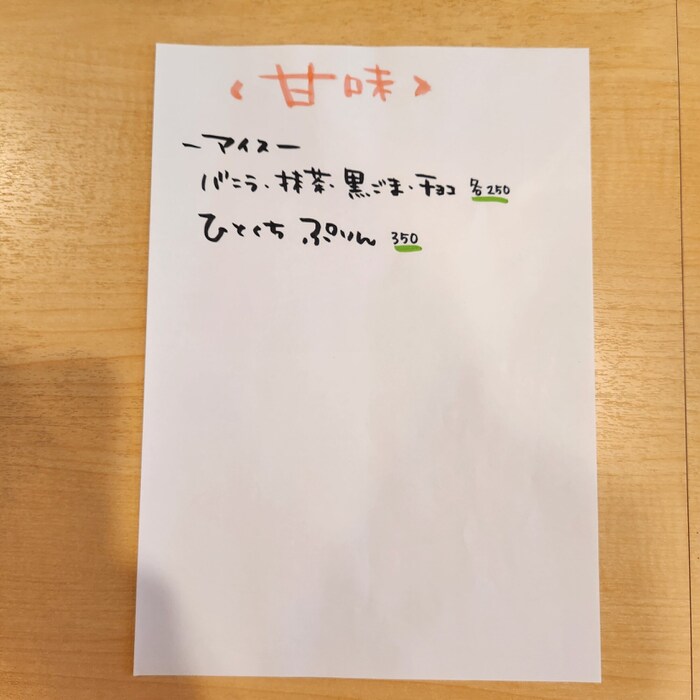 〈甘味〉
－アイス－
バニラ・抹茶・黒ごま・チョコ 各250
ひとくち ぷりん 350